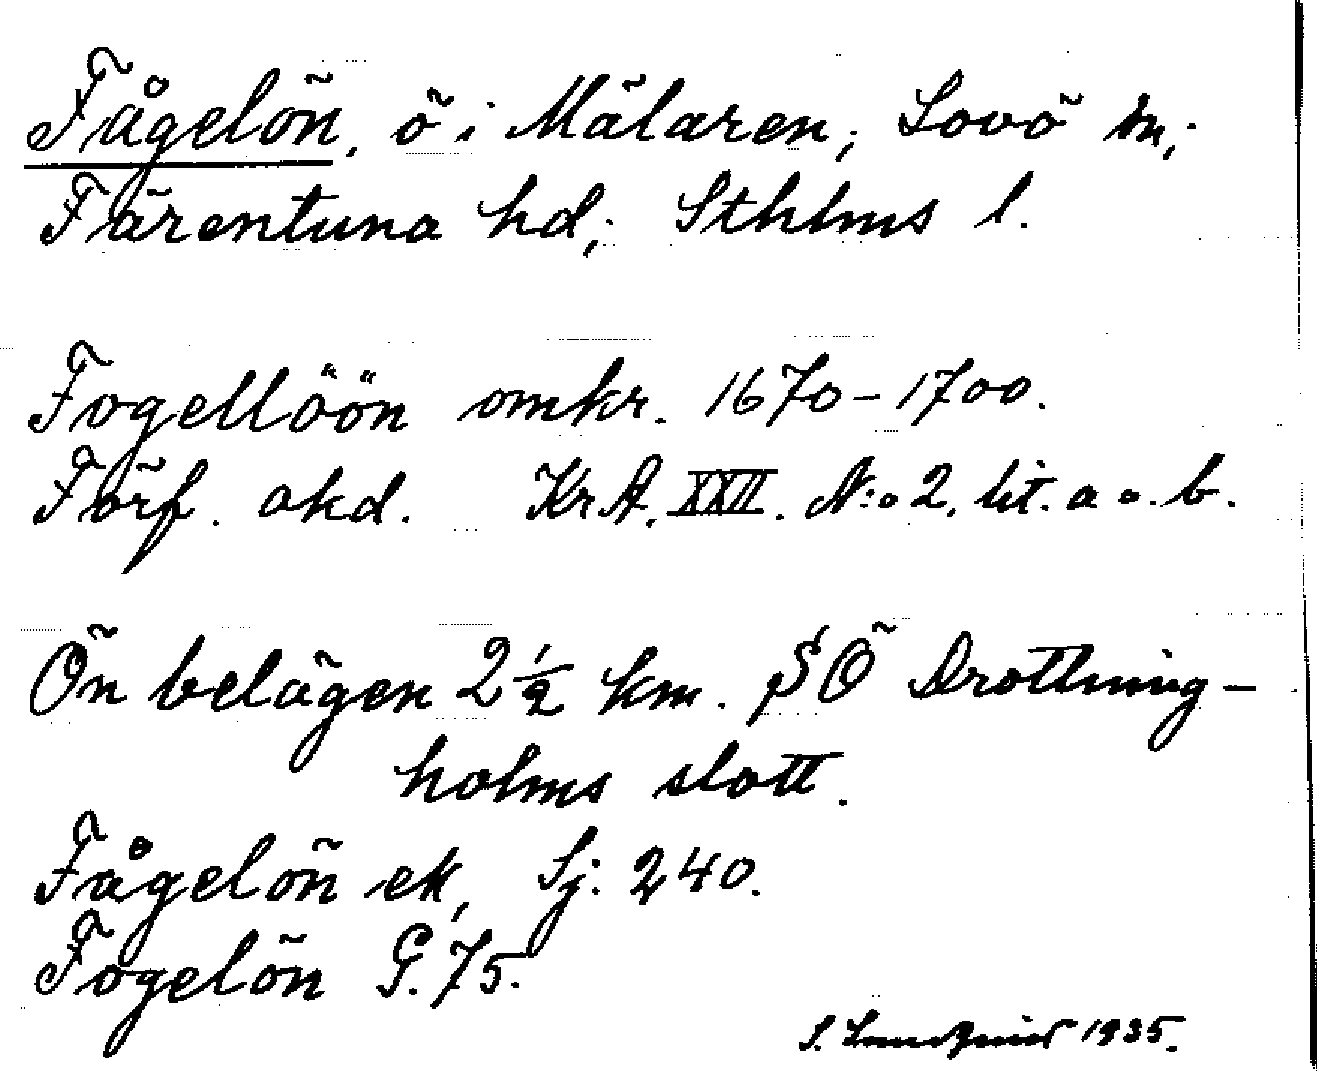 Fågelön, ö i Mälaren; Lovö sn,;
Färentuna hd,; Sthlms l.
Fogellöön omkr. 1670-1700.
Förf. okd. KrA. XXII. N:o 2. lit. a o. b.
Ön belägen 2 1/2 km. SÖ Drottning-
holms slott.
Fågelön ek, Sj. 240.
Fogelön G. 75.
S. 1935.